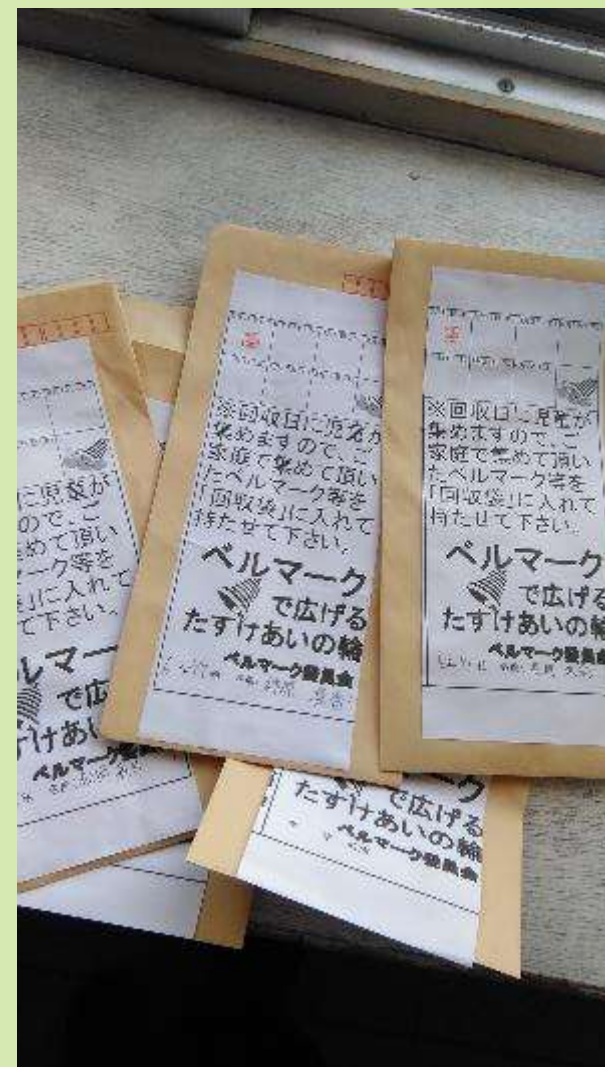 に児童が
ので、ご
めて頂い
ーク等を
」に入れて
て下さい。
ルマー
で広
すけあい
ベルマーク委
※回収日に児童が
集めますので、ご
家庭で集めて頂い
たベルマーク等を
「回収袋」に入れて
持たせて下さい。
ベルマーク
で広げる
たすけあいの輪
ベルマーク委員会
※回収日に児童が
集めますので、ご
家庭で集めて頂い
たベルマーク等を
「回収袋」に入れて
持たせて下さい。
ベルマーク
で広げる
たすけあいの輪
ベルマーク委員会
ーク
で広げる
たすけあいの輪
ベルマーク委員会